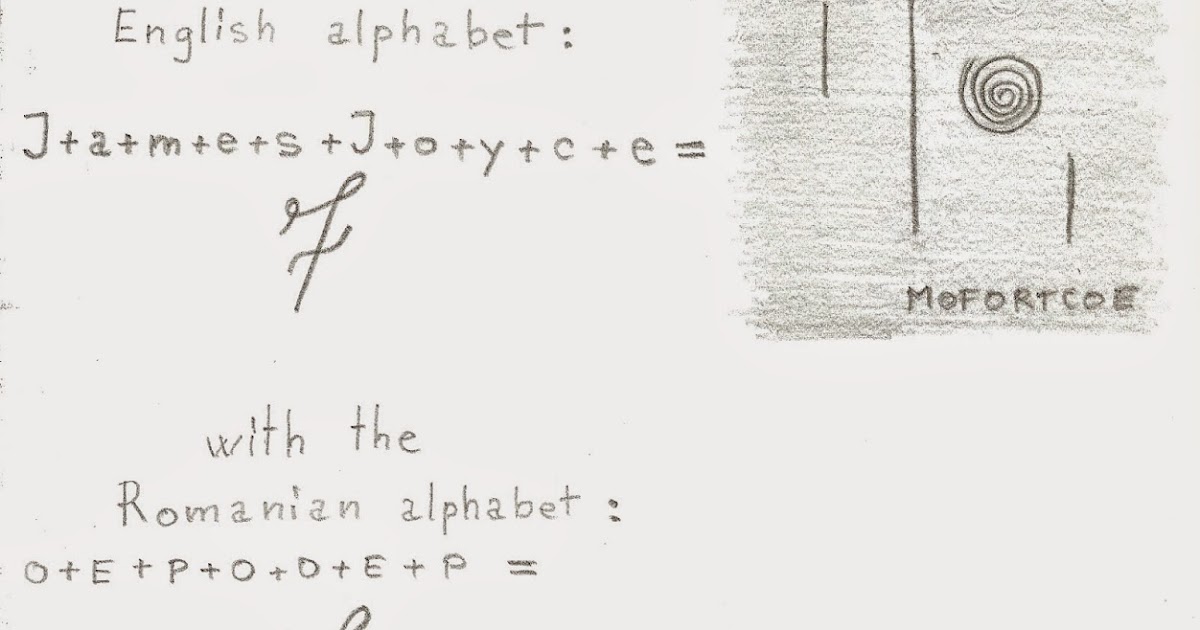 English alphabet:
J+a+m+e+s+J+o+y+c+e=
F
MOFORTCOE
with the
Romanian alphabet:
O+E+P+O+D+E+P =